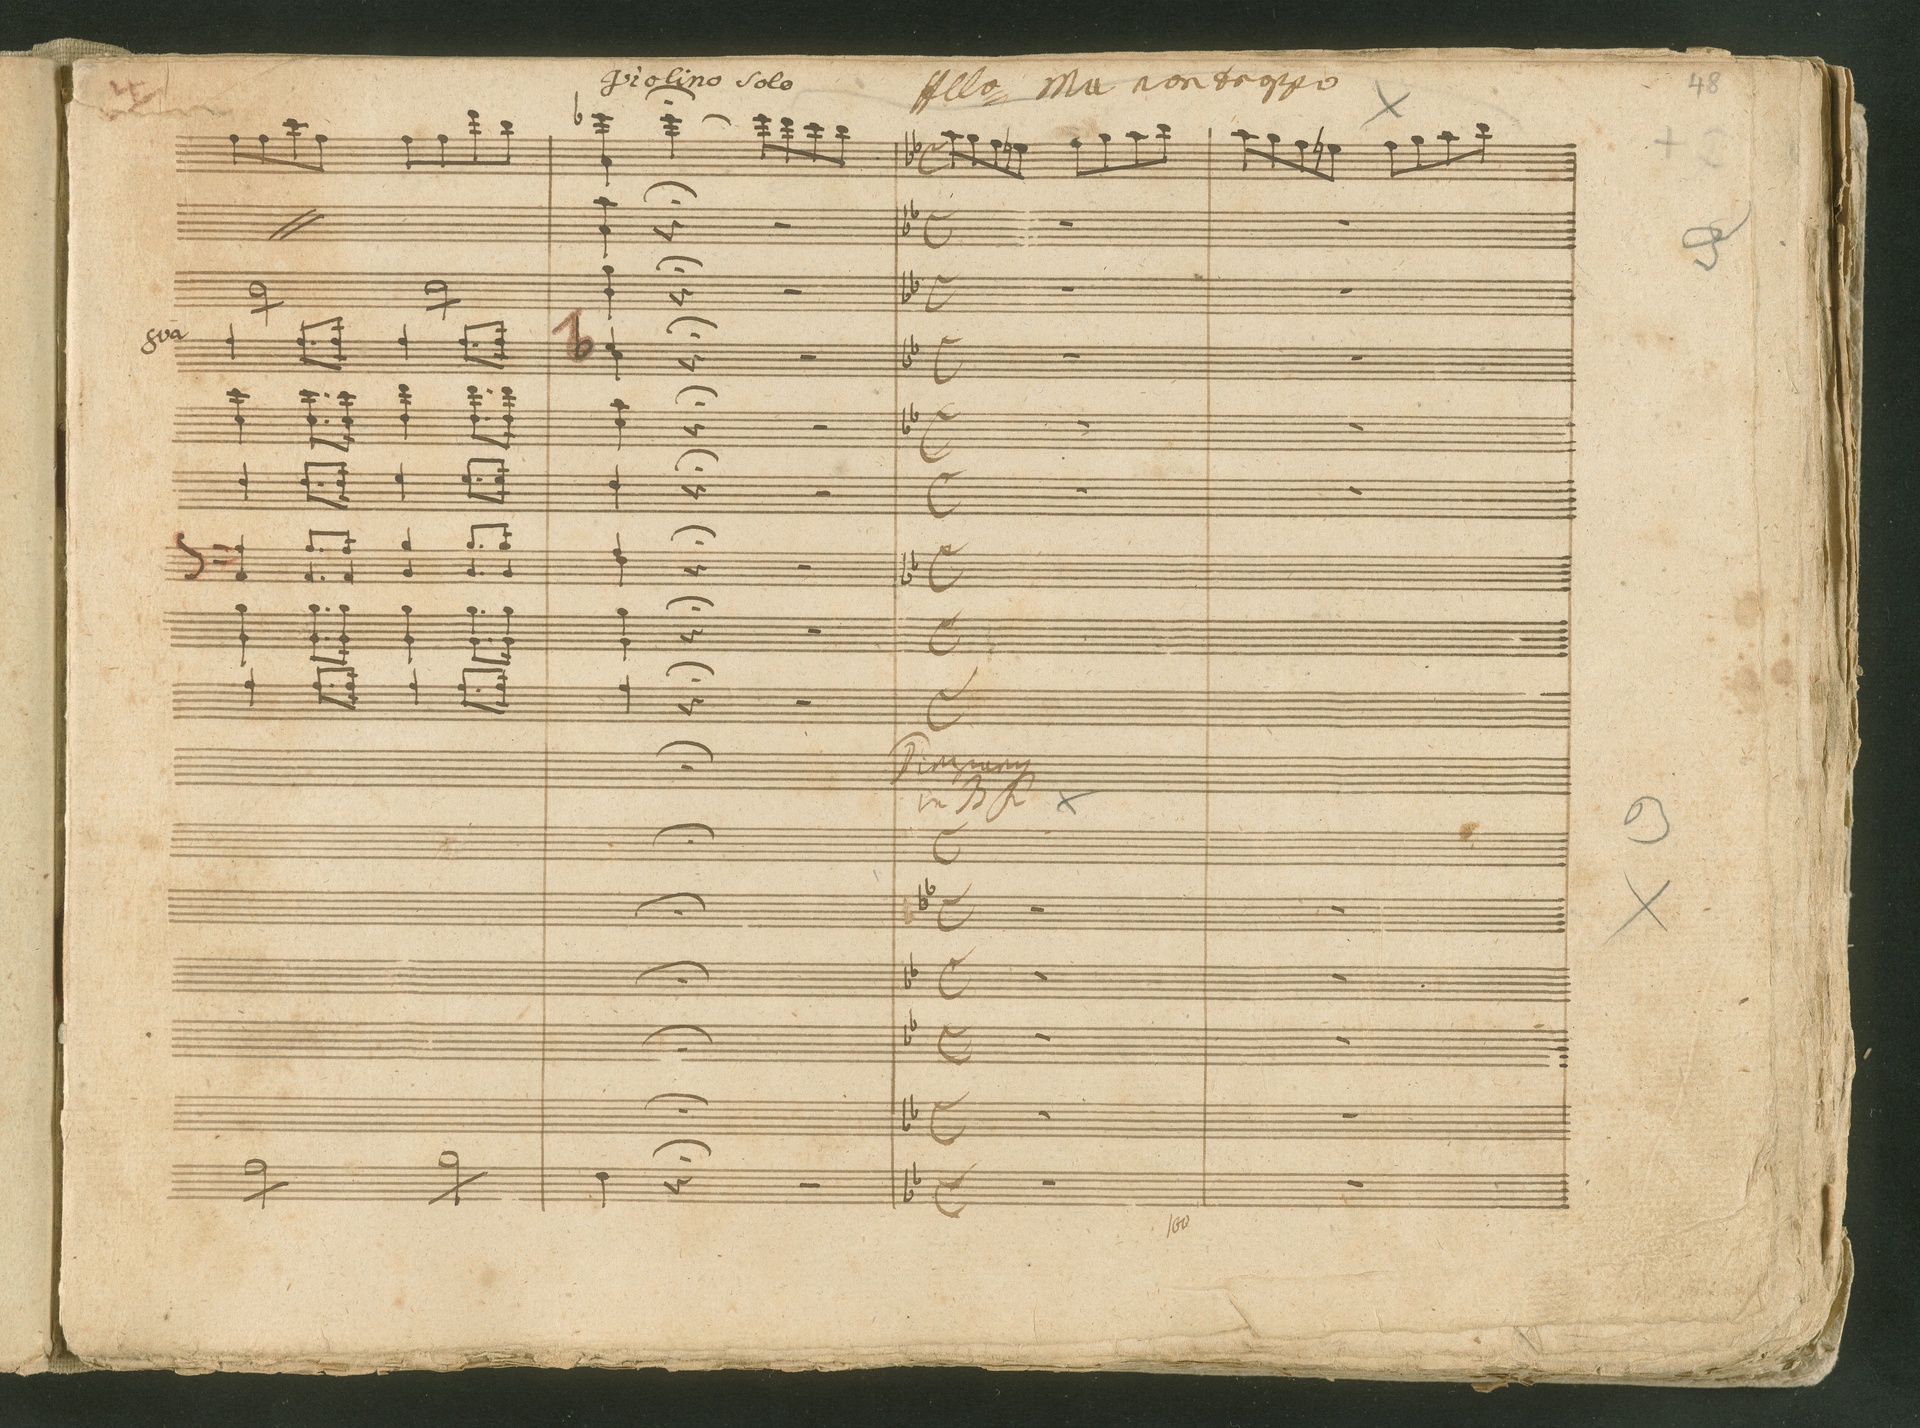 Violino Solo
Allo Ma non troppo
48
8va
in B
100